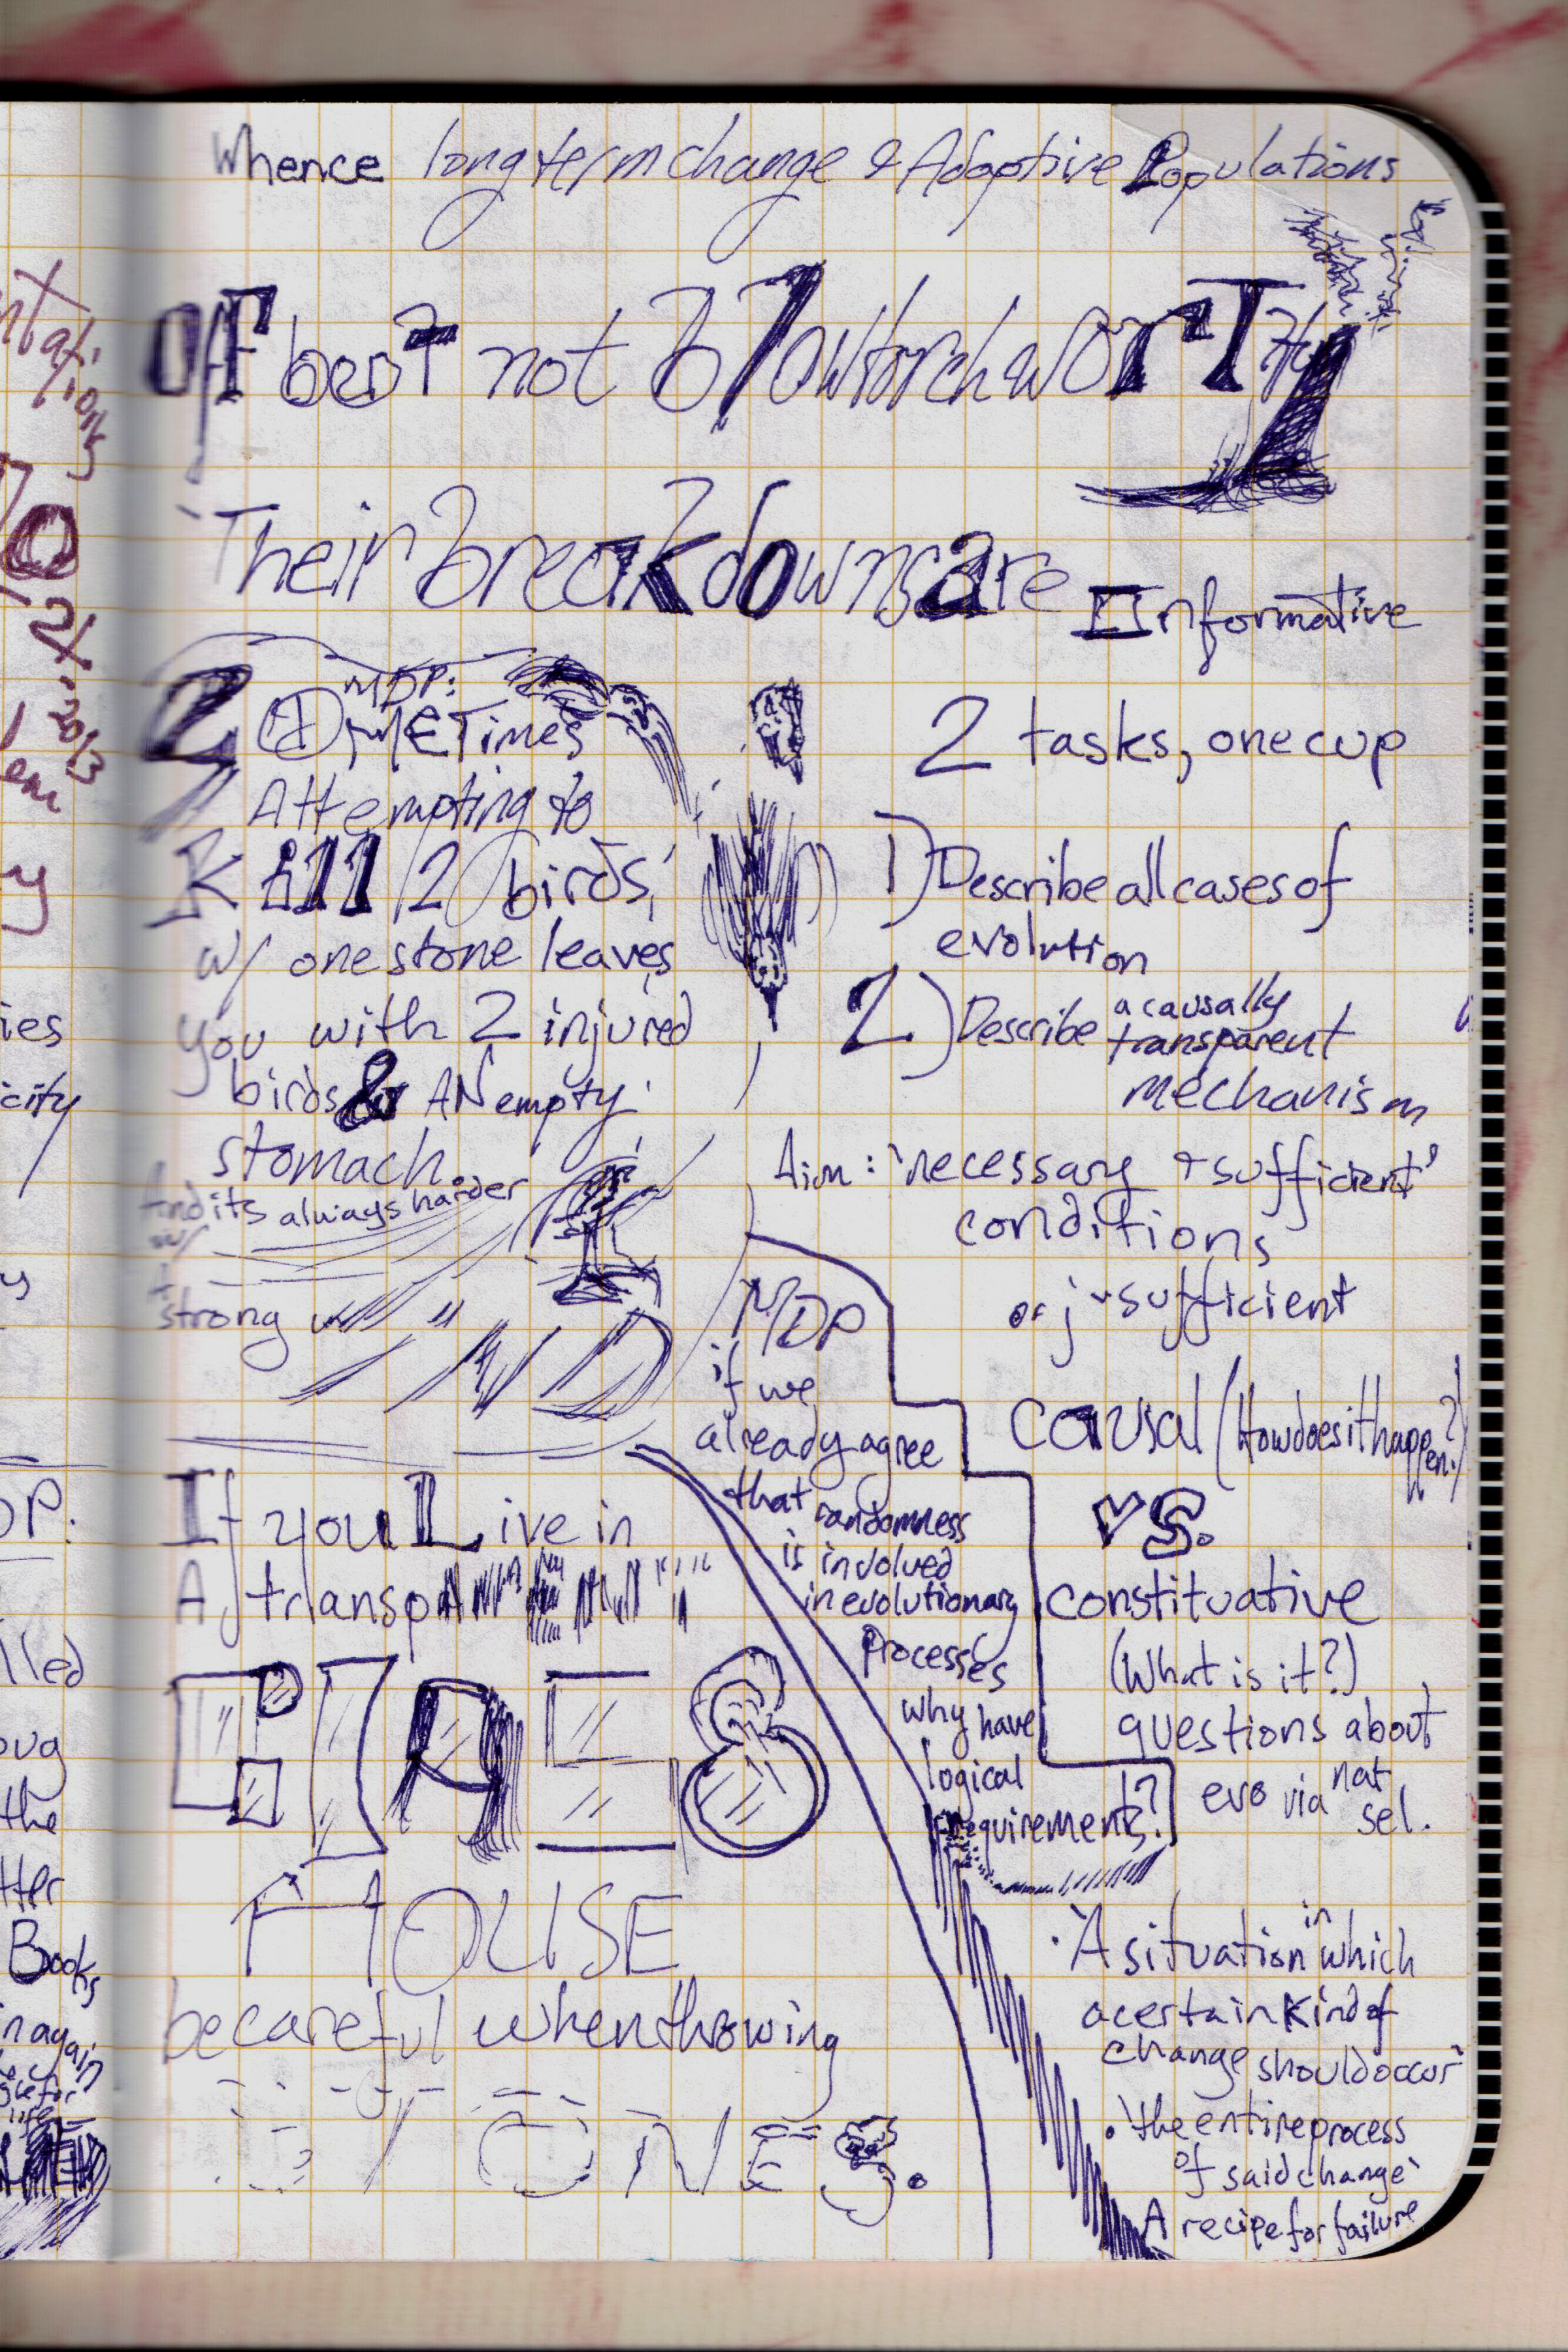 Whence long term change & Adaptive Populations
Off beat not blowtorch worthy
Their breakdowns are Informative
2 MDP:
Times
Attempting to
Kill 2 birds
w/ one stone leaves
you with 2 injured
birds & AN empty
stomach.
And its always harder
w/
strong
2 tasks, one cup
1) Describe all cases of
evolution
2) Describe a causally
transparent
mechanism
Aim: 'necessary + sufficient'
conditions
or just sufficient
causal (How does it happen?)
vs.
constituative
(What is it?)
questions about
evo via nat
sel.
MDP
if we
already agree
that randomness
is involved
in evolutionary
processes
why have
logical
requirements!?
If you Live in
A
GLASS
HOUSE
be careful when throwing
STONES.
• 'A situation in which
a certain kind of
change should occur'
• 'the entire process
of said change'
A recipe for failure
ntations
70
2X
2013
em
y
ies
city
y
DP.
lled
oug
the
tter
Books
in again
life